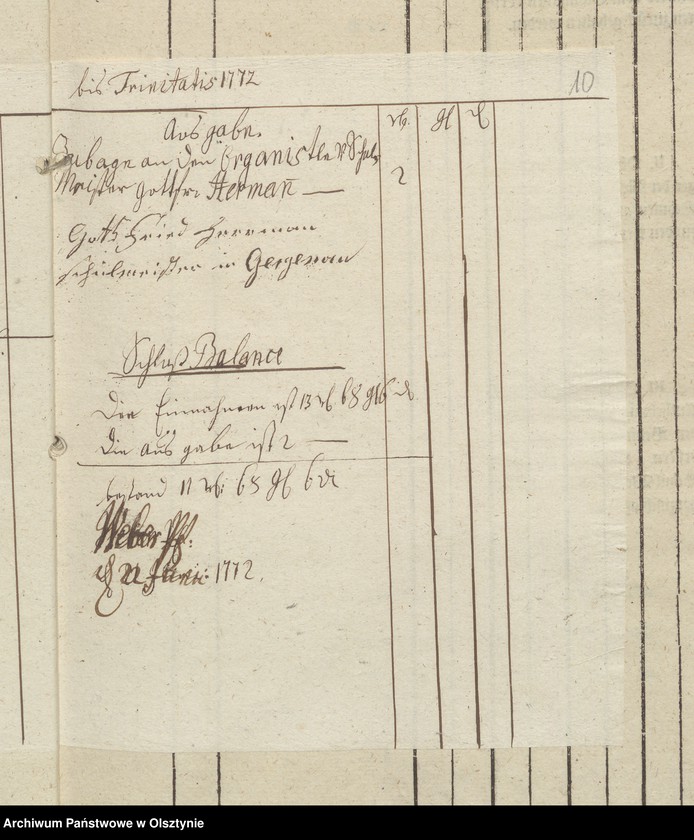 bis Trinitatis 1772
10
Ausgabe.
rth. gl d
Zulage an den Organisten u Schul
Meister Gottfr. Hermañ — 2
Gottfried Herrman
schulmeister in
Schluß Balance
Die Einnahmen ist 13 rth 68 gl 6 d
die Ausgabe ist 2 —
bestand 11 rth: 68 gl 6 d
Weber Pf:
Junii: 1772.
Archiwum Państwowe w Olsztynie